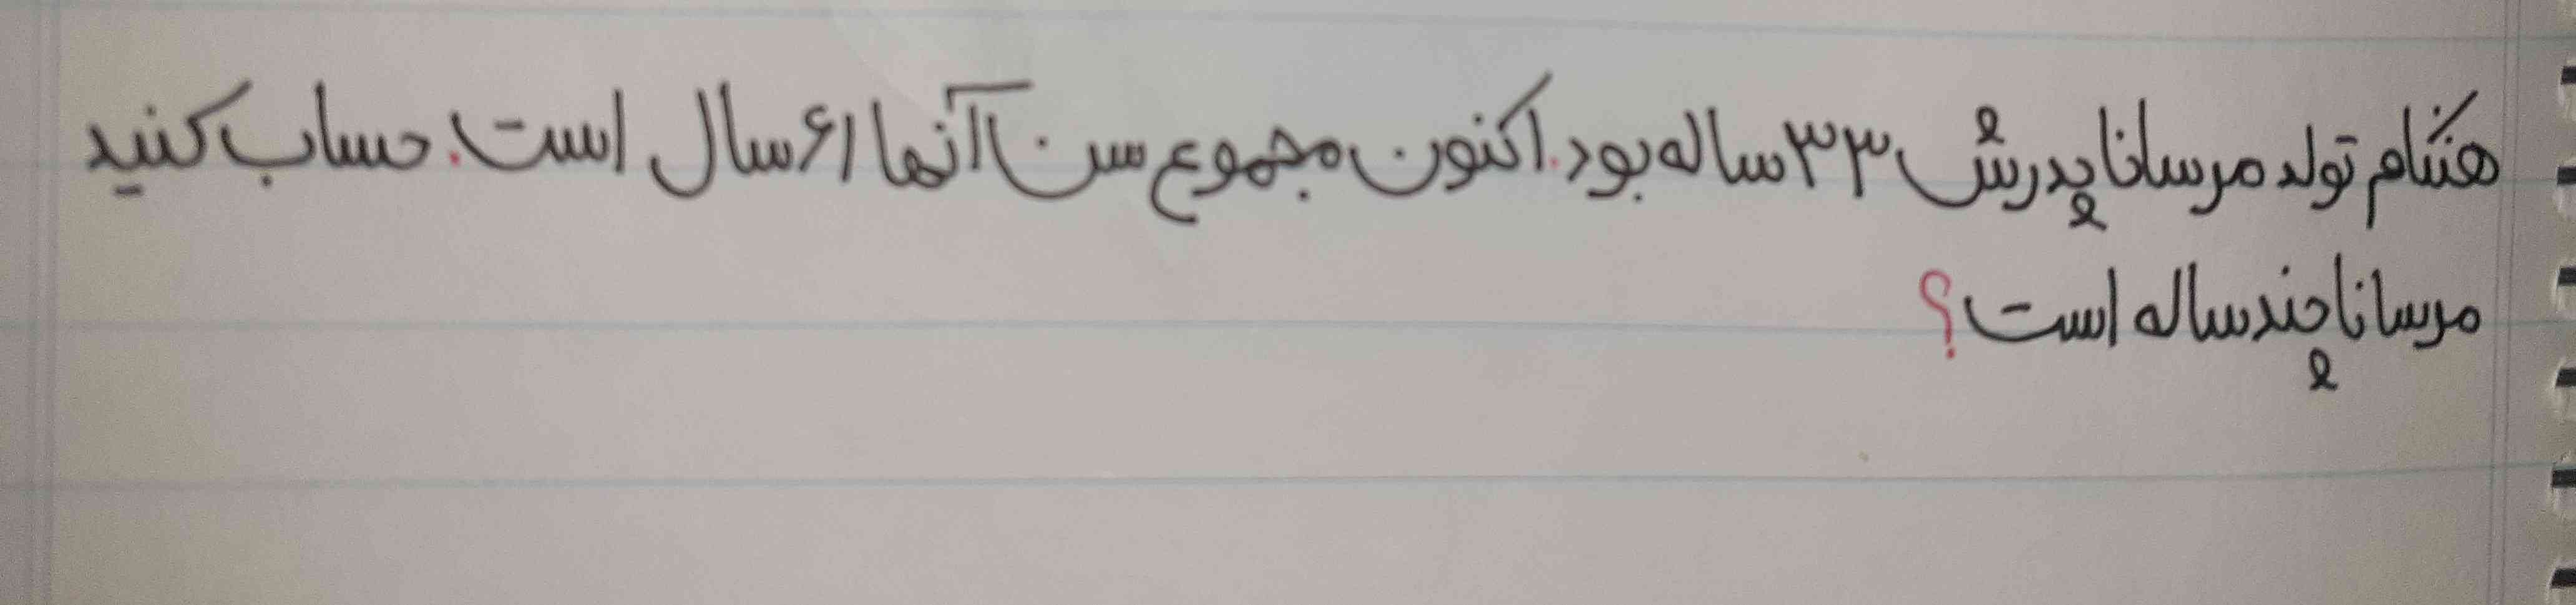 هنگام تولد مرسانا پدرش ۳۳ ساله بود. اکنون مجموع سن آنها ۶۱ سال است. حساب کنید
مرسانا چند ساله است؟